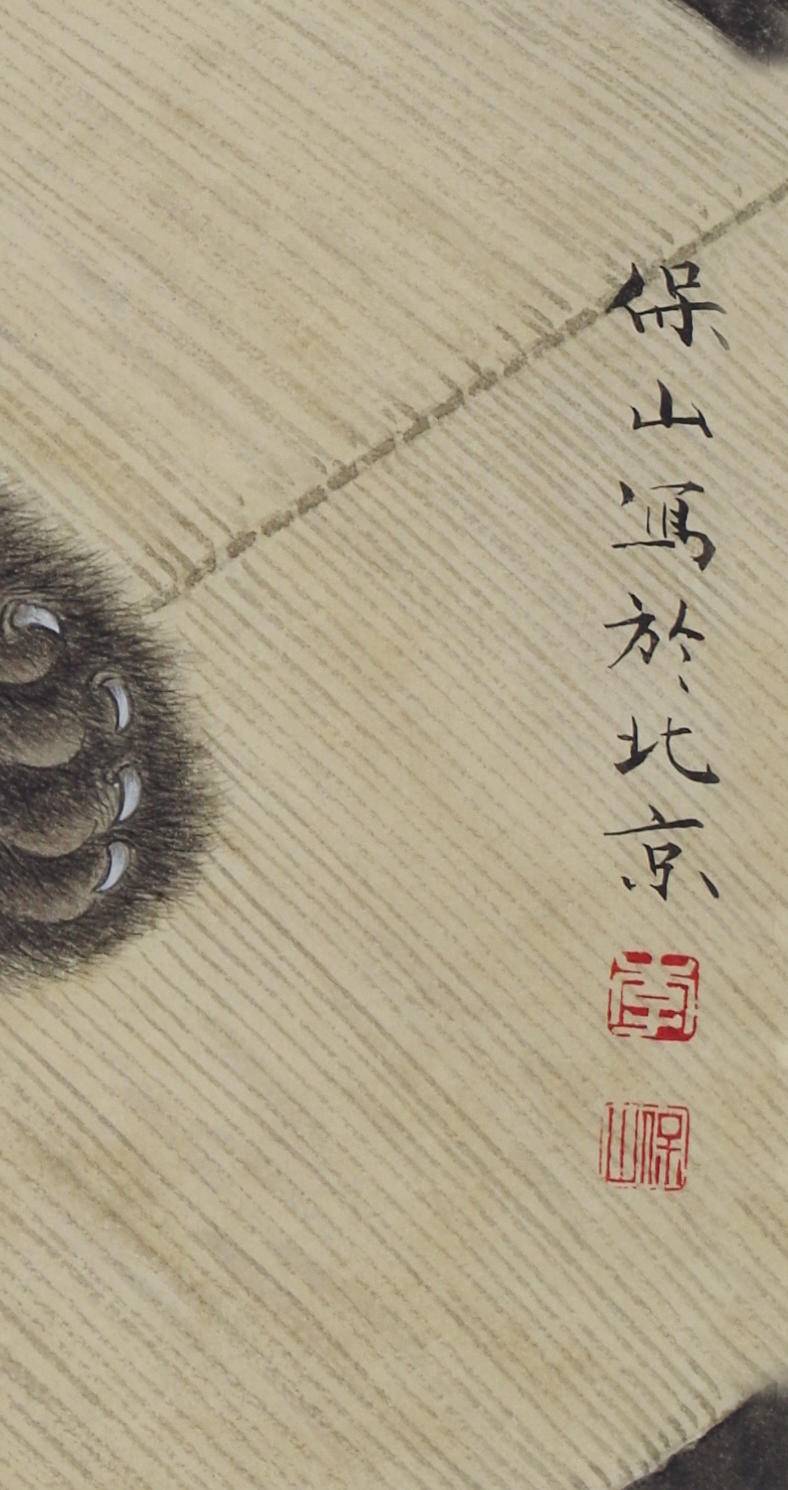 保山寫於北京
保山